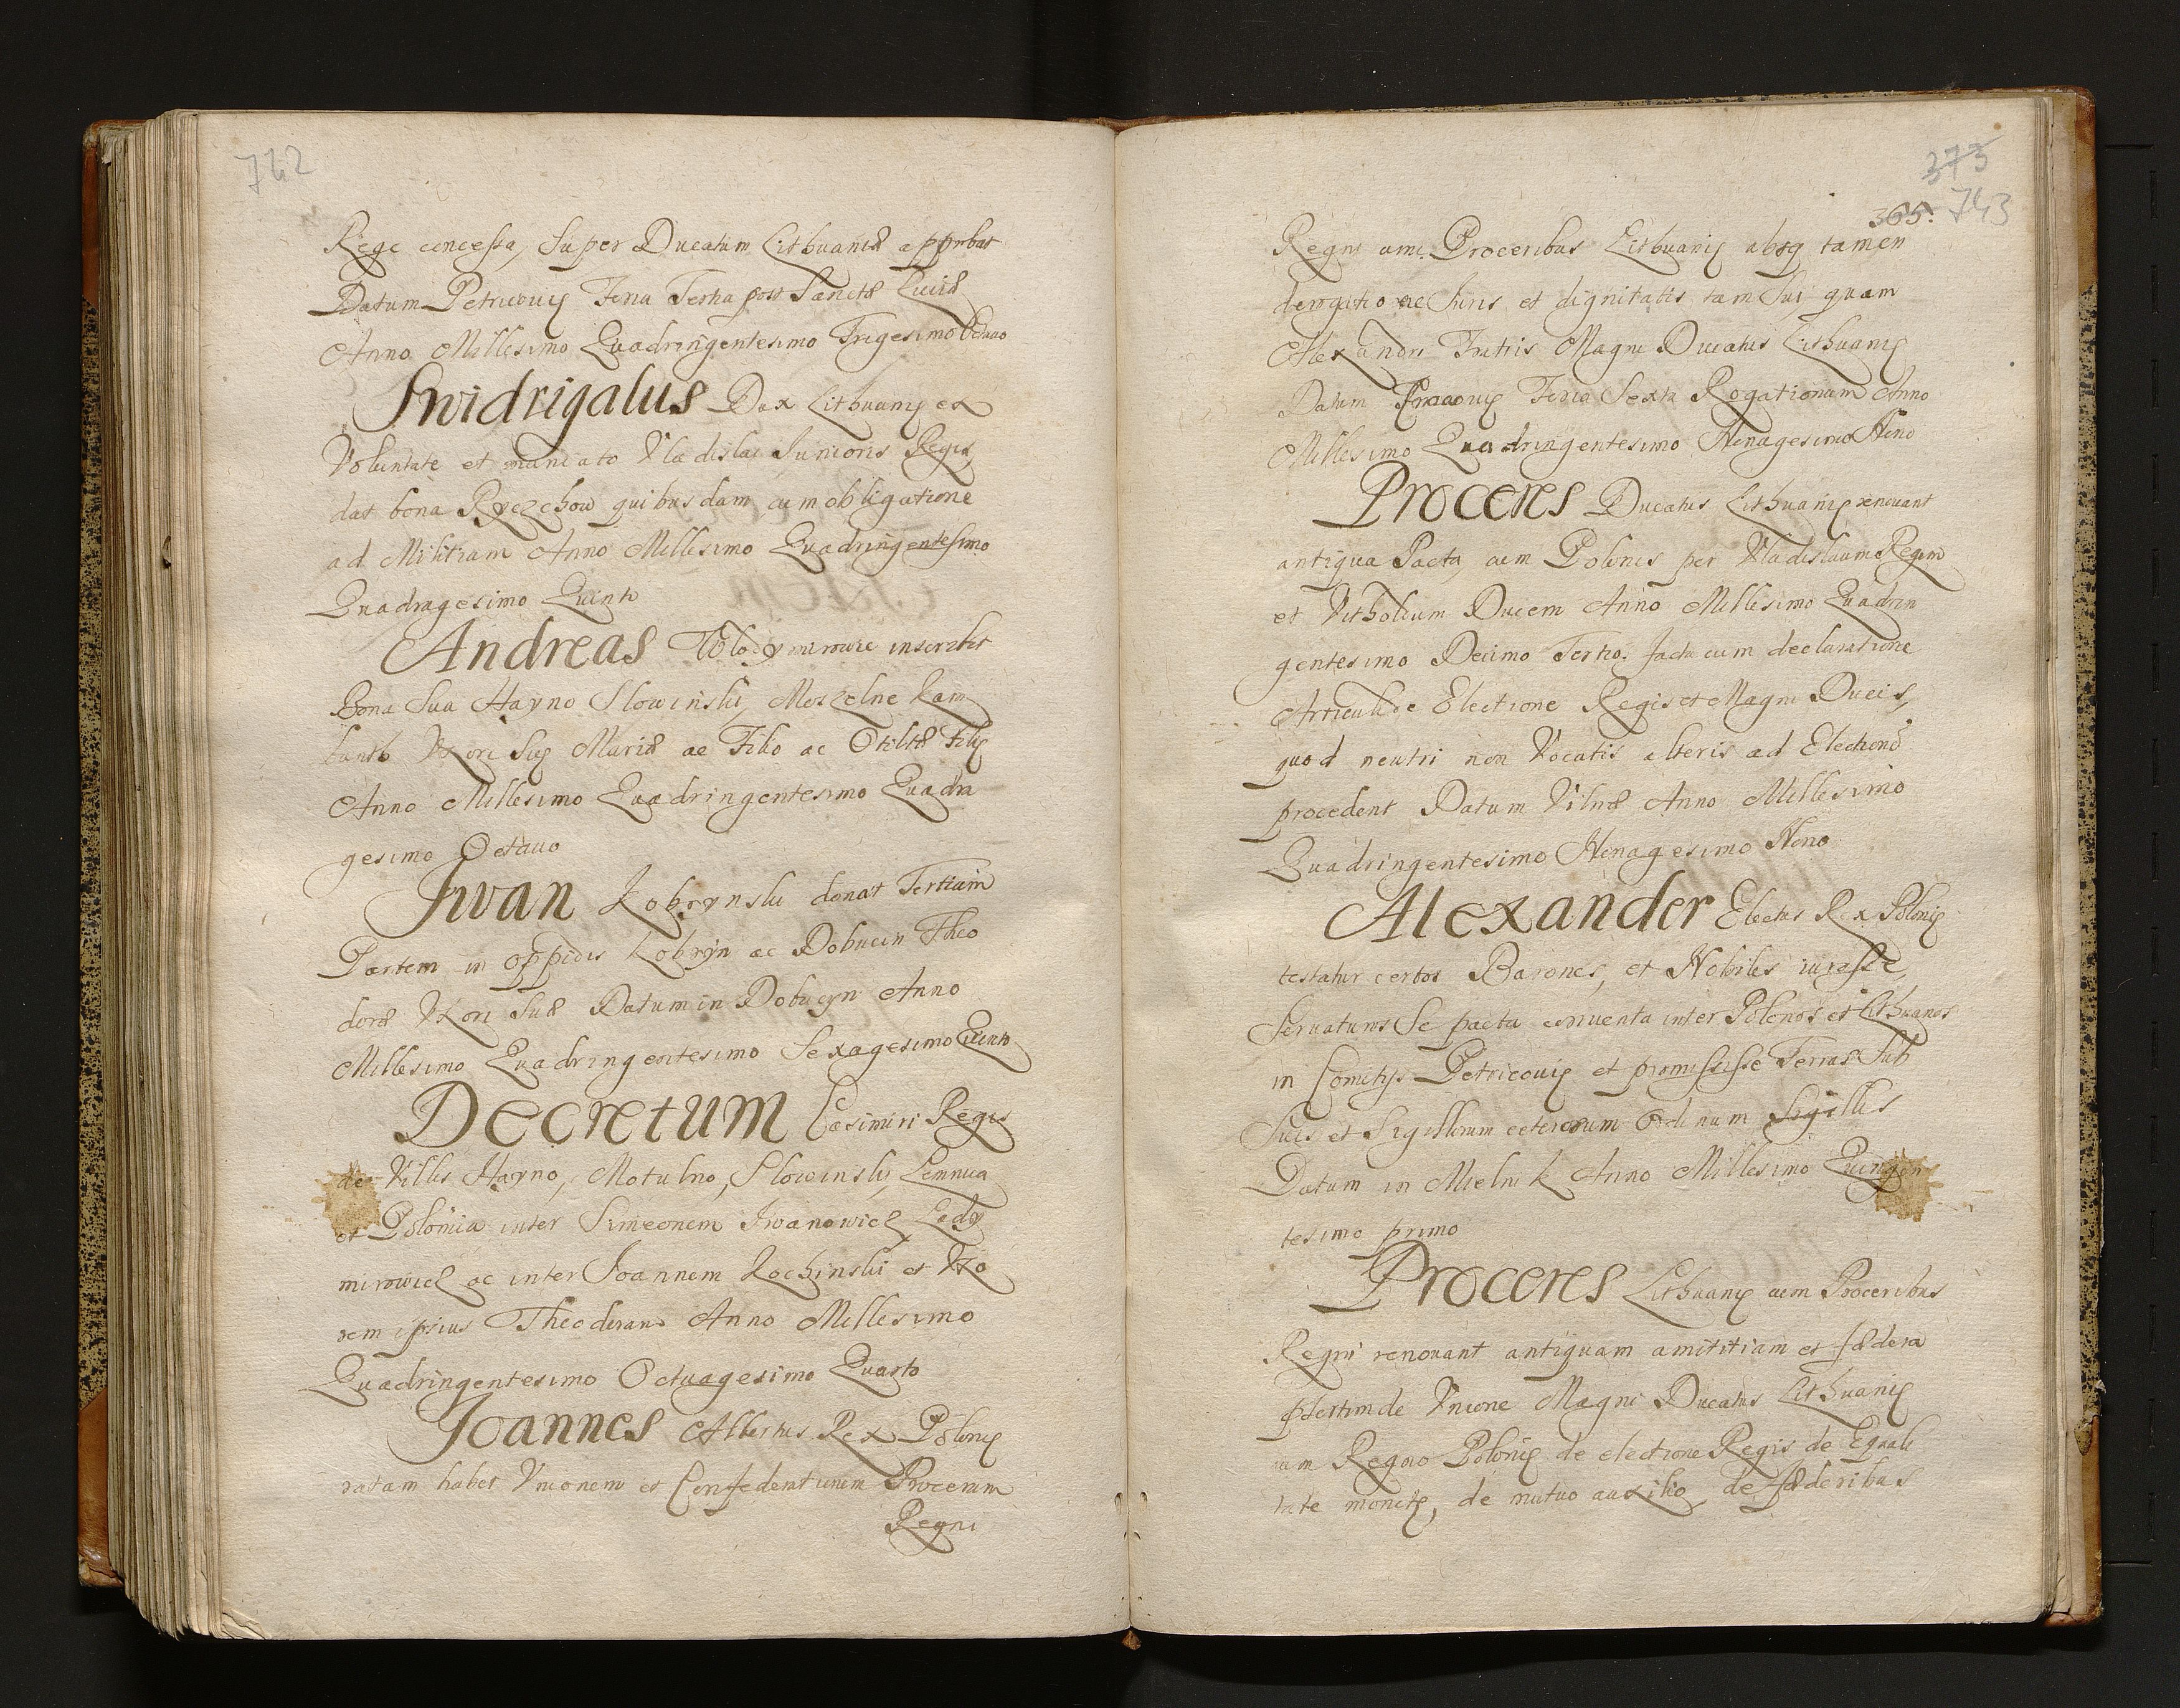 742
Rege concessa, super Ducatum Lithuaniæ approbat
Datum Petricouię Feria Tertia post Sanctæ Luciæ
Anno Millesimo Quadringentesimo Trigesimo Octauo
Swidrigalus Dux Lithuanię ex
Voluntate et mandato Vladislai Iunioris Regis,
dat bona Ryczchow quibusdam cum obligatione
ad Militiam Anno Millesimo Quadringentesimo
Quadragesimo Quinto
Andreas Wlodymirowic inscribit
Bona Sua Hayno Slowinski, Moszelne
Vxori Suę Mariæ ac Filio ac Filię
Anno Millesimo Quadringentesimo Quadra
gesimo Octauo
Iwan Kobrynski donat Tertiam
Partem in oppidis Kobryn ac Dobucin Theo
doræ Vxori Suæ Datum in Dobucyn Anno
Millesimo Quadringentesimo Sexagesimo Quinto
Decretum Casimiri Regis
de Villis Hayno, Motulno, Slowinsky, Lemnica
et Polomia inter Simeonem Iwanowicz
mirowicz ac inter Ioannem Kochinski et Vxo
rem ipsius Theodoram Anno Millesimo
Quadringentesimo Octuagesimo Quarto
Joannes Albertus Rex Polonię
ratam habet Vnionem et Procerum
Regni
373
365. 743
Regni cum Proceribus Lithuanię absq tamen
derogatione Iuris et dignitatis tam Sui, quam
Alexandri Fratris Magni Ducatus Lithuanię
Datum Cracouię Feria Sexta Rogationum Anno
Millesimo Quadringentesimo Nonagesimo Nono
Proceres Ducatus Lithuanię renouant
antiqua Pacta, cum Polonis per Vladislaum Regem
et Vitholdum Ducem Anno Millesimo Quadrin
gentesimo Decimo Tertio. facta cum declaratione
Articuli de Electione Regis et Magni Ducis,
quod neutri non Vocatis alteris ad Electionē
procedent Datum Vilnæ Anno Millesimo
Quadringentesimo Nonagesimo Nono
Alexander Electus Rex Polonię
testatur certos Barones, et Nobiles iurasse,
Seruaturos Se pacta conuenta inter Polonos et Lithuanos
in Comitijs Petricouię et promisisse Terras Sub
Suis et Sigillorum ceterorum Ordinum Sigillis
Datum in Mielnik Anno Millesimo Quingen
tesimo primo
Proceres Lithuanię cum Proceribus
Regni renouant antiquam amititiam et fædera
de Vnione Magni Ducatus Lithuanię
cum Regno Polonię de electione Regis de Equali
tate monetę, de mutuo auxilio, de fæderibus